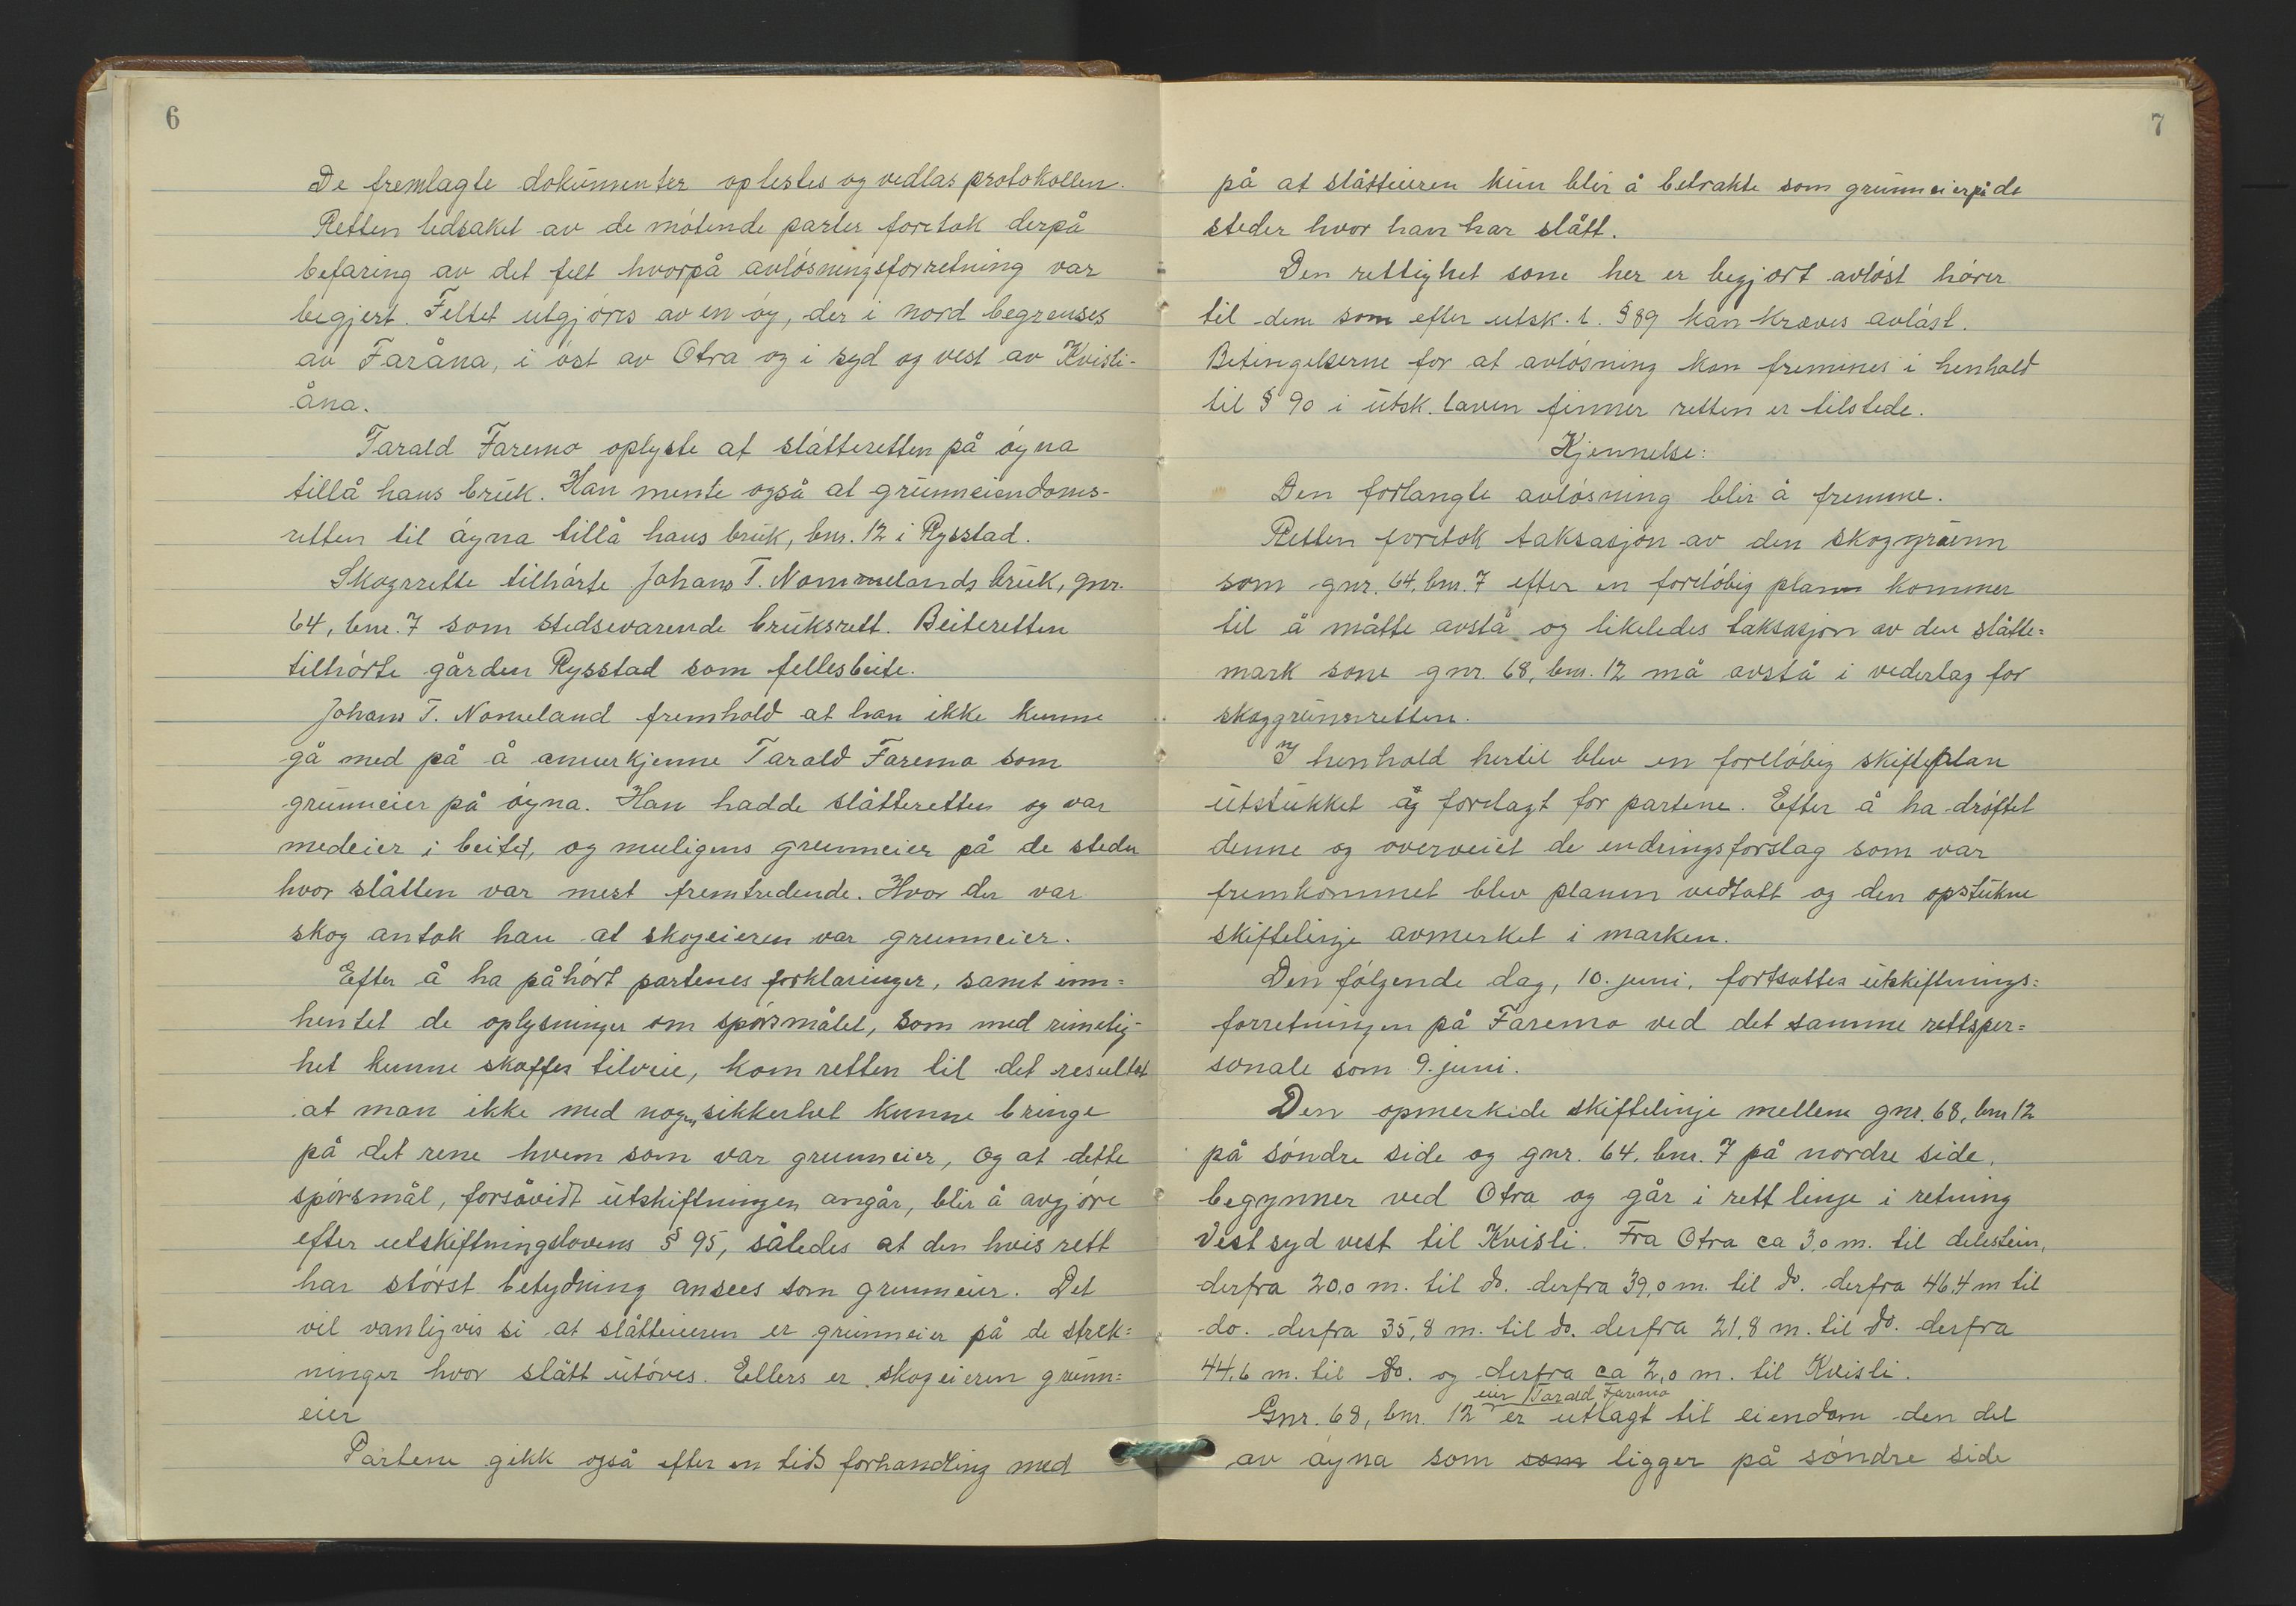 6
De fremlagte dokumenter oplestes og vedlas protokollen.
Retten ledsaket av de møtende parter foretok derpå
befaring av det felt hvorpå avløsningsforretning var
begjert. Feltet utgjøres av en øy, der i nord begrenses
av Faråna, i øst av Otra og i syd og vest av Kvisli-
åna.
Tarald Faremo oplyste at slåtteretten på øyna
tillå hans bruk. Han mente også at grunneiendoms-
retten til øyna tillå hans bruk, bnr. 12 i Rysstad.
Skogrrette tilhørte Johans T. Nommelands bruk, gnr.
64, bnr. 7 som stedsevarende bruksrett. Beiteretten
tilhørte gården Rysstad som fellesbeite.
Johans T. Nomeland fremhold at han ikke kunne
gå med på å annerkjenne Tarald Faremo som
grunneier på øyna. Han hadde slåtteretten og var
medeier i beitet, og muligens grunneier på de steder
hvor slåtten var mest fremtredende. Hvor der var
skog antok han at skogeieren var grunneier.
Efter å ha påhørt partenes forklaringer, samt inn=
hentet de oplysninger om spørsmålet, som med rimelig-
het kunne skaffes tilveie, kom retten til det resultat
at man ikke med nogen sikkerhet kunne bringe
på det rene hvem som var grunneier, og at dette
spørsmål, forsåvidt utskiftningen angår, blir å avgjøre
efter utskiftningslovens § 95, således at den hvis rett
har størst betydning ansees som grunneier. Det
vil vanligvis si at slåtteieren er grunneier på de strek=
ninger hvor slått utøves. Ellers er skogeieren grunn=
eier
Partene gikk også efter en tids forhandling med
7
på at slåtteieren kun blir å betrakte som grunneier på de
steder hvor han har slått.
Den rettighet som her er begjørt avløst hører
til dem som efter utsk. l. § 89 kan kræves avløst.
Betingelserne for at avløsning kan fremmes i henhold
til § 90 i utsk. loven finner retten er tilstede.
Kjennelse:
Den forlangte avløsning blir å fremme.
Retten foretok taksasjon av den skoggrunn
som gnr. 64, bnr. 7 efter en foreløbig plan kommer
til å måtte avstå og likeledes taksasjon av den slåtte=
mark som gnr. 68, bnr. 12 må avstå i vederlag for
skoggrunnretten.
I henhold hertil blev en foreløbig skifteplan
utstukket og forelagt for partene. Efter å ha drøftet
denne og overveiet de endringsforslag som var
fremkommet blev planen vedtatt og den opstukne
skiftelinje avmerket i marken.
Den følgende dag, 10. juni, fortsattes utskiftnings=
forretningen på Faremo ved det samme rettsper=
sonale som 9. juni.
Den opmerkede skiftelinje mellem gnr. 68, bnr 12
på søndre side og gnr. 64, bnr. 7 på nordre side,
begynner ved Otra og går i rett linje i retning
Vest syd vest til Kvisli. Fra Otra ca 3,0 m. til delestein,
derfra 20,0 m. til do. derfra 39,0 m. til do. derfra 46.4 m til
do. derfra 35,8 m. til do. derfra 21,8 m. til do. derfra
44,6 m. til do. og derfra ca 2,0 m. til Kvisli.
eier Tarald Faremo
Gnr. 68, bnr. 12 er utlagt til eiendom den del
av øyna som som ligger på søndre side